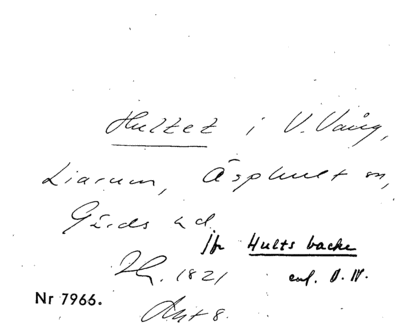 Hultet i V. Vång,
Liarum, Äsphult sn,
Gärds hd.
Jfr Hults backe
1821 enl. O.W.
Nr 7966.